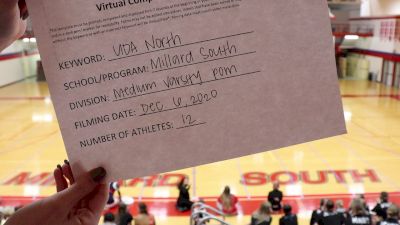 Virtual Comp
KEYWORD: UDA North
SCHOOL/PROGRAM: Millard South
DIVISION: Medium Varsity Pom
FILMING DATE: Dec 6, 2020
NUMBER OF ATHLETES: 12
MILLARD SOUTH